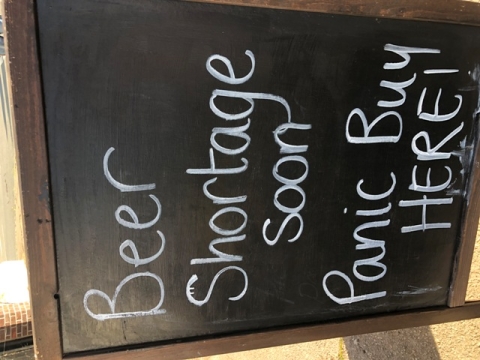 Beer
Shortage
Soon
Panic Buy
HERE!